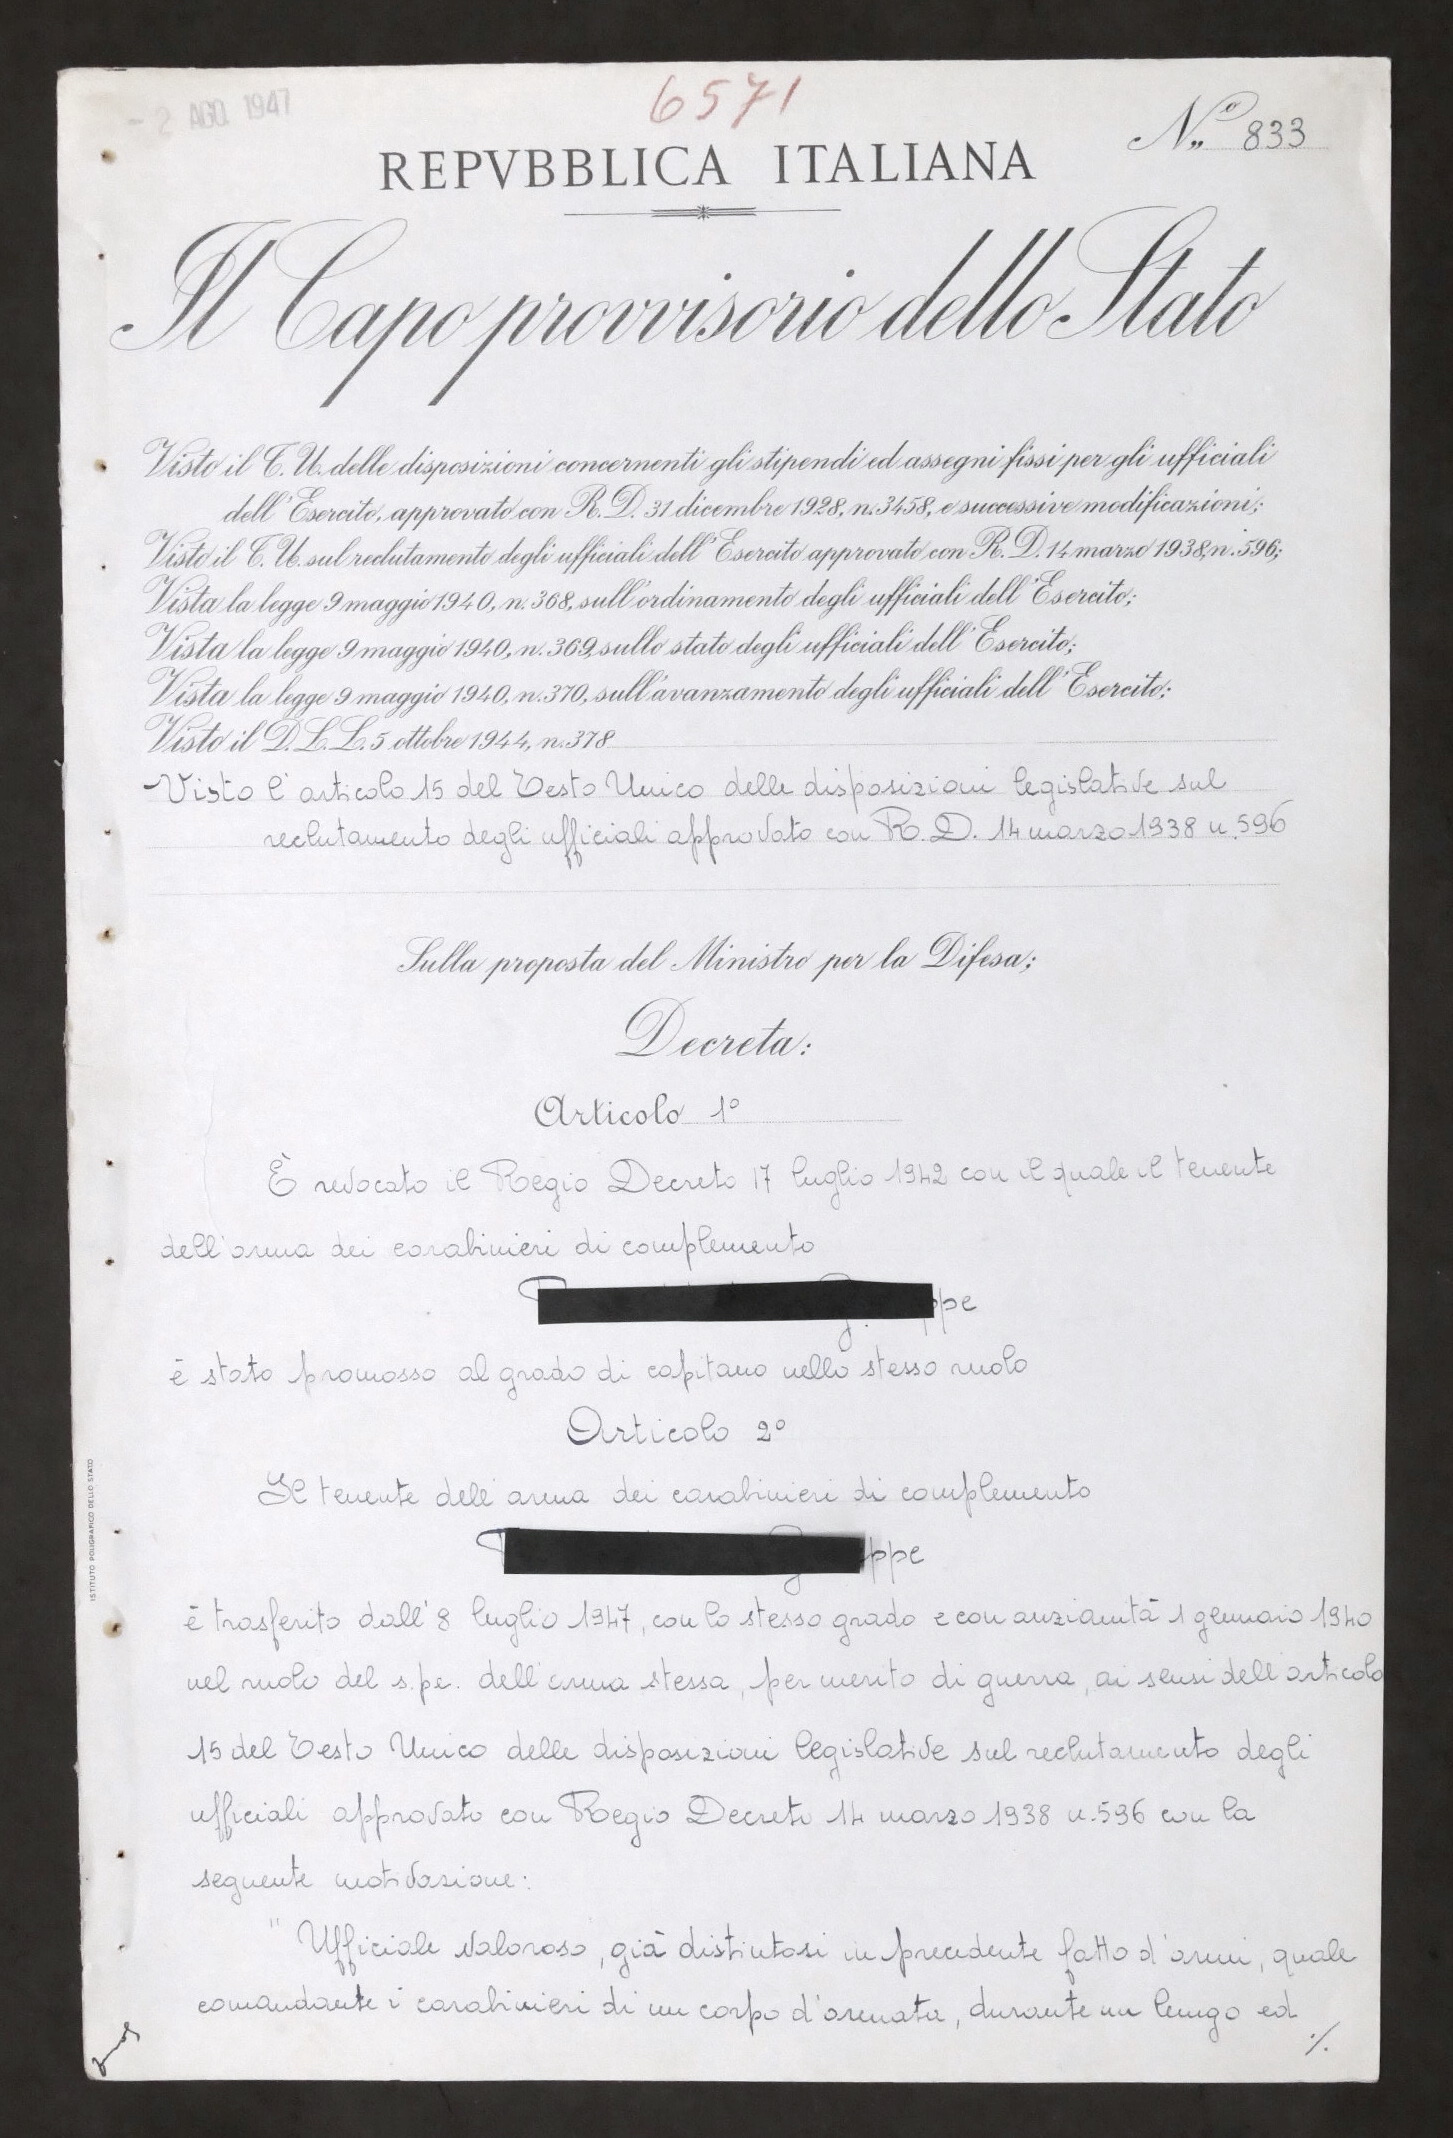 - 2 AGO. 1947
6571
Nº 833
REPVBBLICA ITALIANA
Il Capo provvisorio dello Stato
Visto il T. U. delle disposizioni concernenti gli stipendi ed assegni fissi per gli ufficiali
dell'Esercito, approvato con R. D. 31 dicembre 1928, n. 3458, e successive modificazioni;
Visto il T. U. sul reclutamento degli ufficiali dell'Esercito approvato con R. D. 14 marzo 1938, n. 596;
Vista la legge 9 maggio 1940, n. 368, sull'ordinamento degli ufficiali dell'Esercito;
Vista la legge 9 maggio 1940, n. 369, sullo stato degli ufficiali dell'Esercito;
Vista la legge 9 maggio 1940, n. 370, sull'avanzamento degli ufficiali dell'Esercito;
Visto il D. L. L. 5 ottobre 1944, n. 378
Visto l'articolo 15 del Testo Unico delle disposizioni legislative sul
reclutamento degli ufficiali approvato con R. D. 14 marzo 1938 n. 596
Sulla proposta del Ministro per la Difesa;
Decreta:
Articolo 1º
È revocato il Regio Decreto 17 luglio 1942 con il quale il tenente
dell'arma dei carabinieri di complemento
ppe
è stato promosso al grado di capitano nello stesso ruolo
Articolo 2º
Il tenente dell'arma dei carabinieri di complemento
ppe
è trasferito dall'8 luglio 1947, con lo stesso grado e con anzianità 1 gennaio 1940
nel ruolo del s.p.e. dell'arma stessa, per merito di guerra, ai sensi dell'articolo
15 del Testo Unico delle disposizioni legislative sul reclutamento degli
ufficiali approvato con Regio Decreto 14 marzo 1938 n. 596 con la
seguente motivazione:
"Ufficiale valoroso, già distintosi in precedente fatto d'armi, quale
comandante i carabinieri di un corpo d'armata, durante un lungo ed
./.
ISTITUTO POLIGRAFICO DELLO STATO